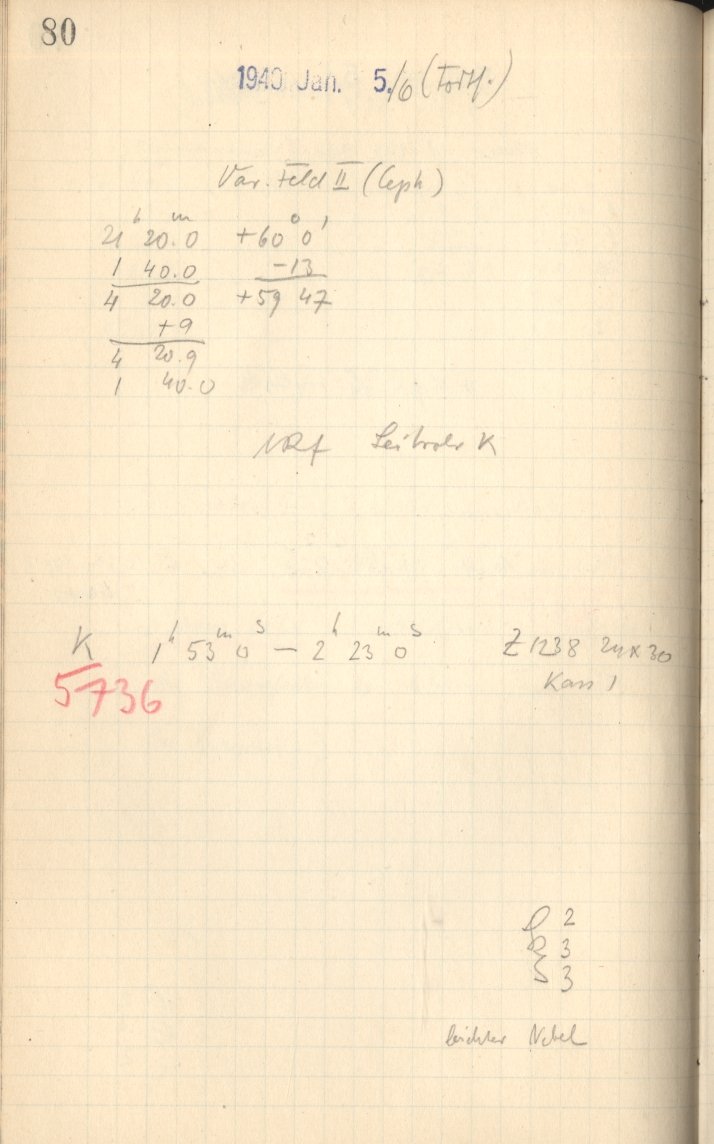 80
1940 Jan. 5./6 (Forts.)
Var. Feld II (Ceph)
21 h 20.0 m +60° 0'
1 40.0 -13
4 20.0 +59 47
+9
4 20.9
1 40.0
Leitrohr K
K 1 h 53 m 0 s — 2 h 23 m 0 s Z 1238 24x30
5736 Kass 1
2
R 3
S 3
leichter Nebel